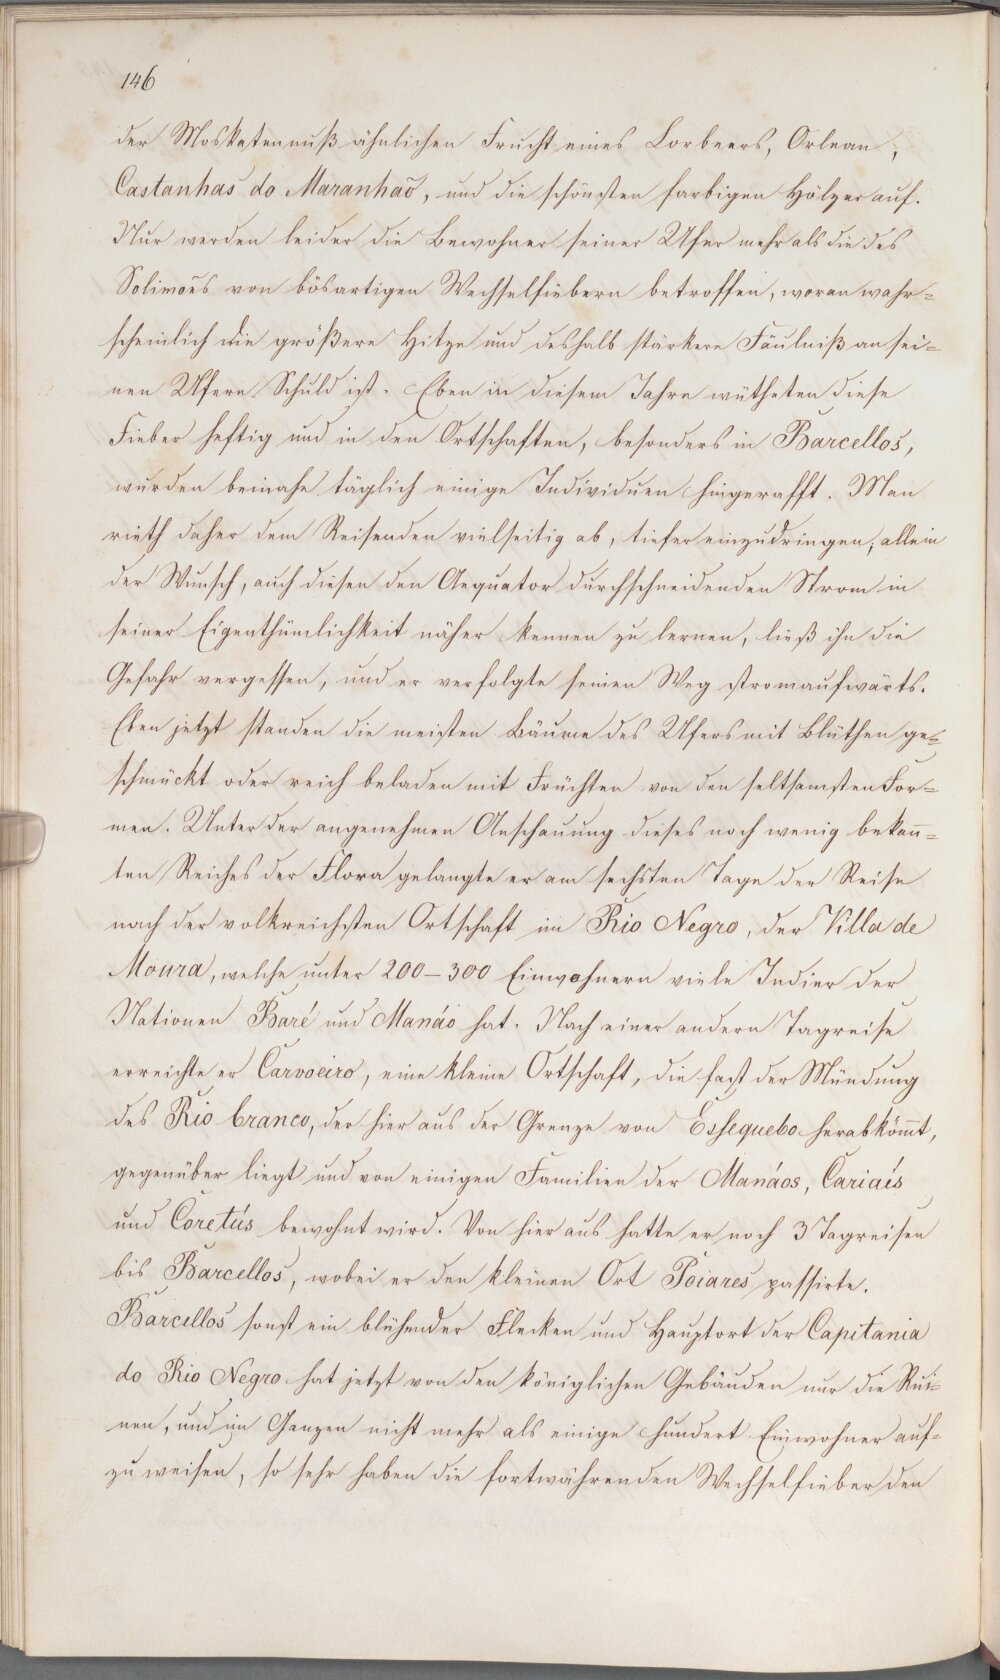 146
der Moskatennuß ähnlichen Frucht eines Lorbeers, Orlean,
Castanhas do Maranhaõ, und die schönsten farbigen Hölzer auf.
Nur werden leider die Bewohner seiner Ufer mehr als die des
Solimoẽs von bösartigen Wechselfiebern betroffen, woran wahr=
scheinlich die größere Hitze und deshalb stärkere Fäulniß an sei=
nen Ufern Schuld ist. Eben in diesem Jahre wütheten diese
Fieber heftig und in den Ortschaften, besonders in Barcellos,
wurden beinahe täglich einige Individuen hingerafft. Man
rieth daher dem Reisenden vielseitig ab, tiefer einzudringen; allein
der Wunsch, auch diesen den Aequator durchschneidenden Strom in
seiner Eigenthümlichkeit näher kennen zu lernen, ließ ihn die
Gefahr vergessen, und er verfolgte seinen Weg stromaufwärts.
Eben jetzt standen die meisten Bäume des Ufers mit Blüthen ge=
schmückt oder reich beladen mit Früchten von den seltsamsten For=
men. Unter der angenehmen Anschauung dieses noch wenig bekan̄=
ten Reiches der Flora gelangte er am sechsten Tage der Reise
nach der volkreichsten Ortschaft im Rio Negro, der Villa de
Moura, welche unter 200–300 Einwohnern viele Indier der
Nationen Baré und Manáo hat. Nach einer andern Tagreise
erreichte er Carvoeiro, eine kleine Ortschaft, die fast der Mündung
des Rio branco, der hier aus der Grenze von Essequebo herabköm̄t,
gegenüber liegt und von einigen Familien der Manáos, Cariaís
und Coretús bewohnt wird. Von hier aus hatte er noch 3 Tagreisen
bis Barcellos, wobei er den kleinen Ort Poiares passirte.
Barcellos sonst ein blühender Flecken und Hauptort der Capitania
do Rio Negro hat jetzt von den königlichen Gebäuden nur die Rui=
nen, und im Ganzen nicht mehr als einige hundert Einwohner auf=
zu weisen, so sehr haben die fortwährenden Wechselfieber den